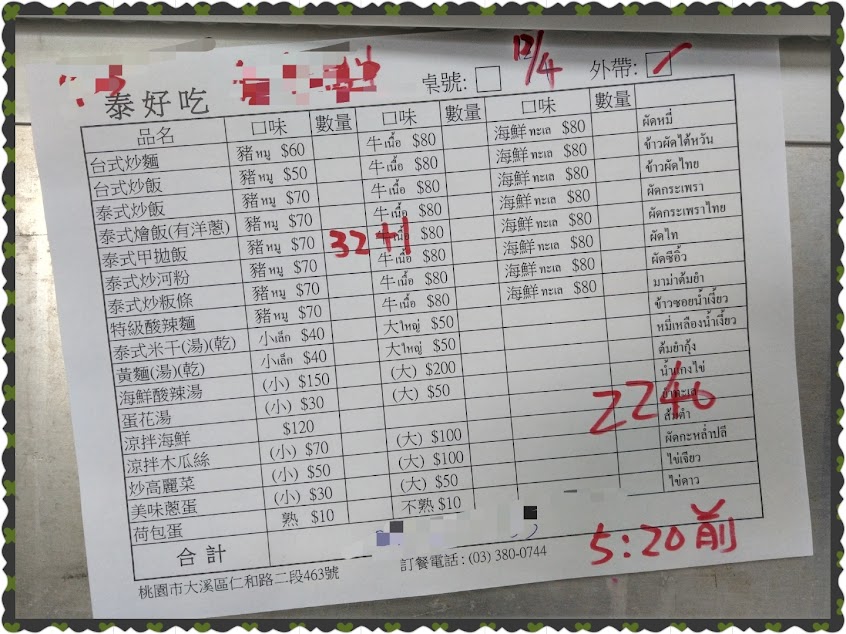 12/4
桌號: 外帶:
泰好吃
品名 口味 數量 口味 數量 口味 數量
台式炒麵 豬หมู $60 牛เนื้อ $80 海鮮ทะเล $80 ผัดหมี่
台式炒飯 豬หมู $50 牛เนื้อ $80 海鮮ทะเล $80 ข้าวผัดไต้หวัน
泰式炒飯 豬หมู $70 牛เนื้อ $80 海鮮ทะเล $80 ข้าวผัดไทย
泰式燴飯(有洋蔥) 豬หมู $70 牛เนื้อ $80 海鮮ทะเล $80 ผัดกระเพรา
泰式甲拋飯 豬หมู $70 牛เนื้อ $80 海鮮ทะเล $80 ผัดกระเพราไทย
32+1
泰式炒河粉 豬หมู $70 牛เนื้อ $80 海鮮ทะเล $80 ผัดไท
泰式炒粄條 豬หมู $70 牛เนื้อ $80 海鮮ทะเล $80 ผัดซีอิ้ว
特級酸辣麵 豬หมู $70 牛เนื้อ $80 海鮮ทะเล $80 มาม่าต้มยำ
泰式米干(湯)(乾) 小เล็ก $40 大ใหญ่ $50 ข้าวซอยน้ำเงี้ยว
黃麵(湯)(乾) 小เล็ก $40 大ใหญ่ $50 หมี่เหลืองน้ำเงี้ยว
海鮮酸辣湯 (小) $150 (大) $200 ต้มยำกุ้ง
蛋花湯 (小) $30 (大) $50 น้ำแกงไข่
涼拌海鮮 $120 ยำทะเล
2240
涼拌木瓜絲 (小) $70 (大) $100 ส้มตำ
炒高麗菜 (小) $50 (大) $100 ผัดกะหล่ำปลี
美味蔥蛋 (小) $30 (大) $50 ไข่เจียว
荷包蛋 熟 $10 不熟 $10 ไข่ดาว
合計
5:20前
桃園市大溪區仁和路二段463號 訂餐電話:(03) 380-0744